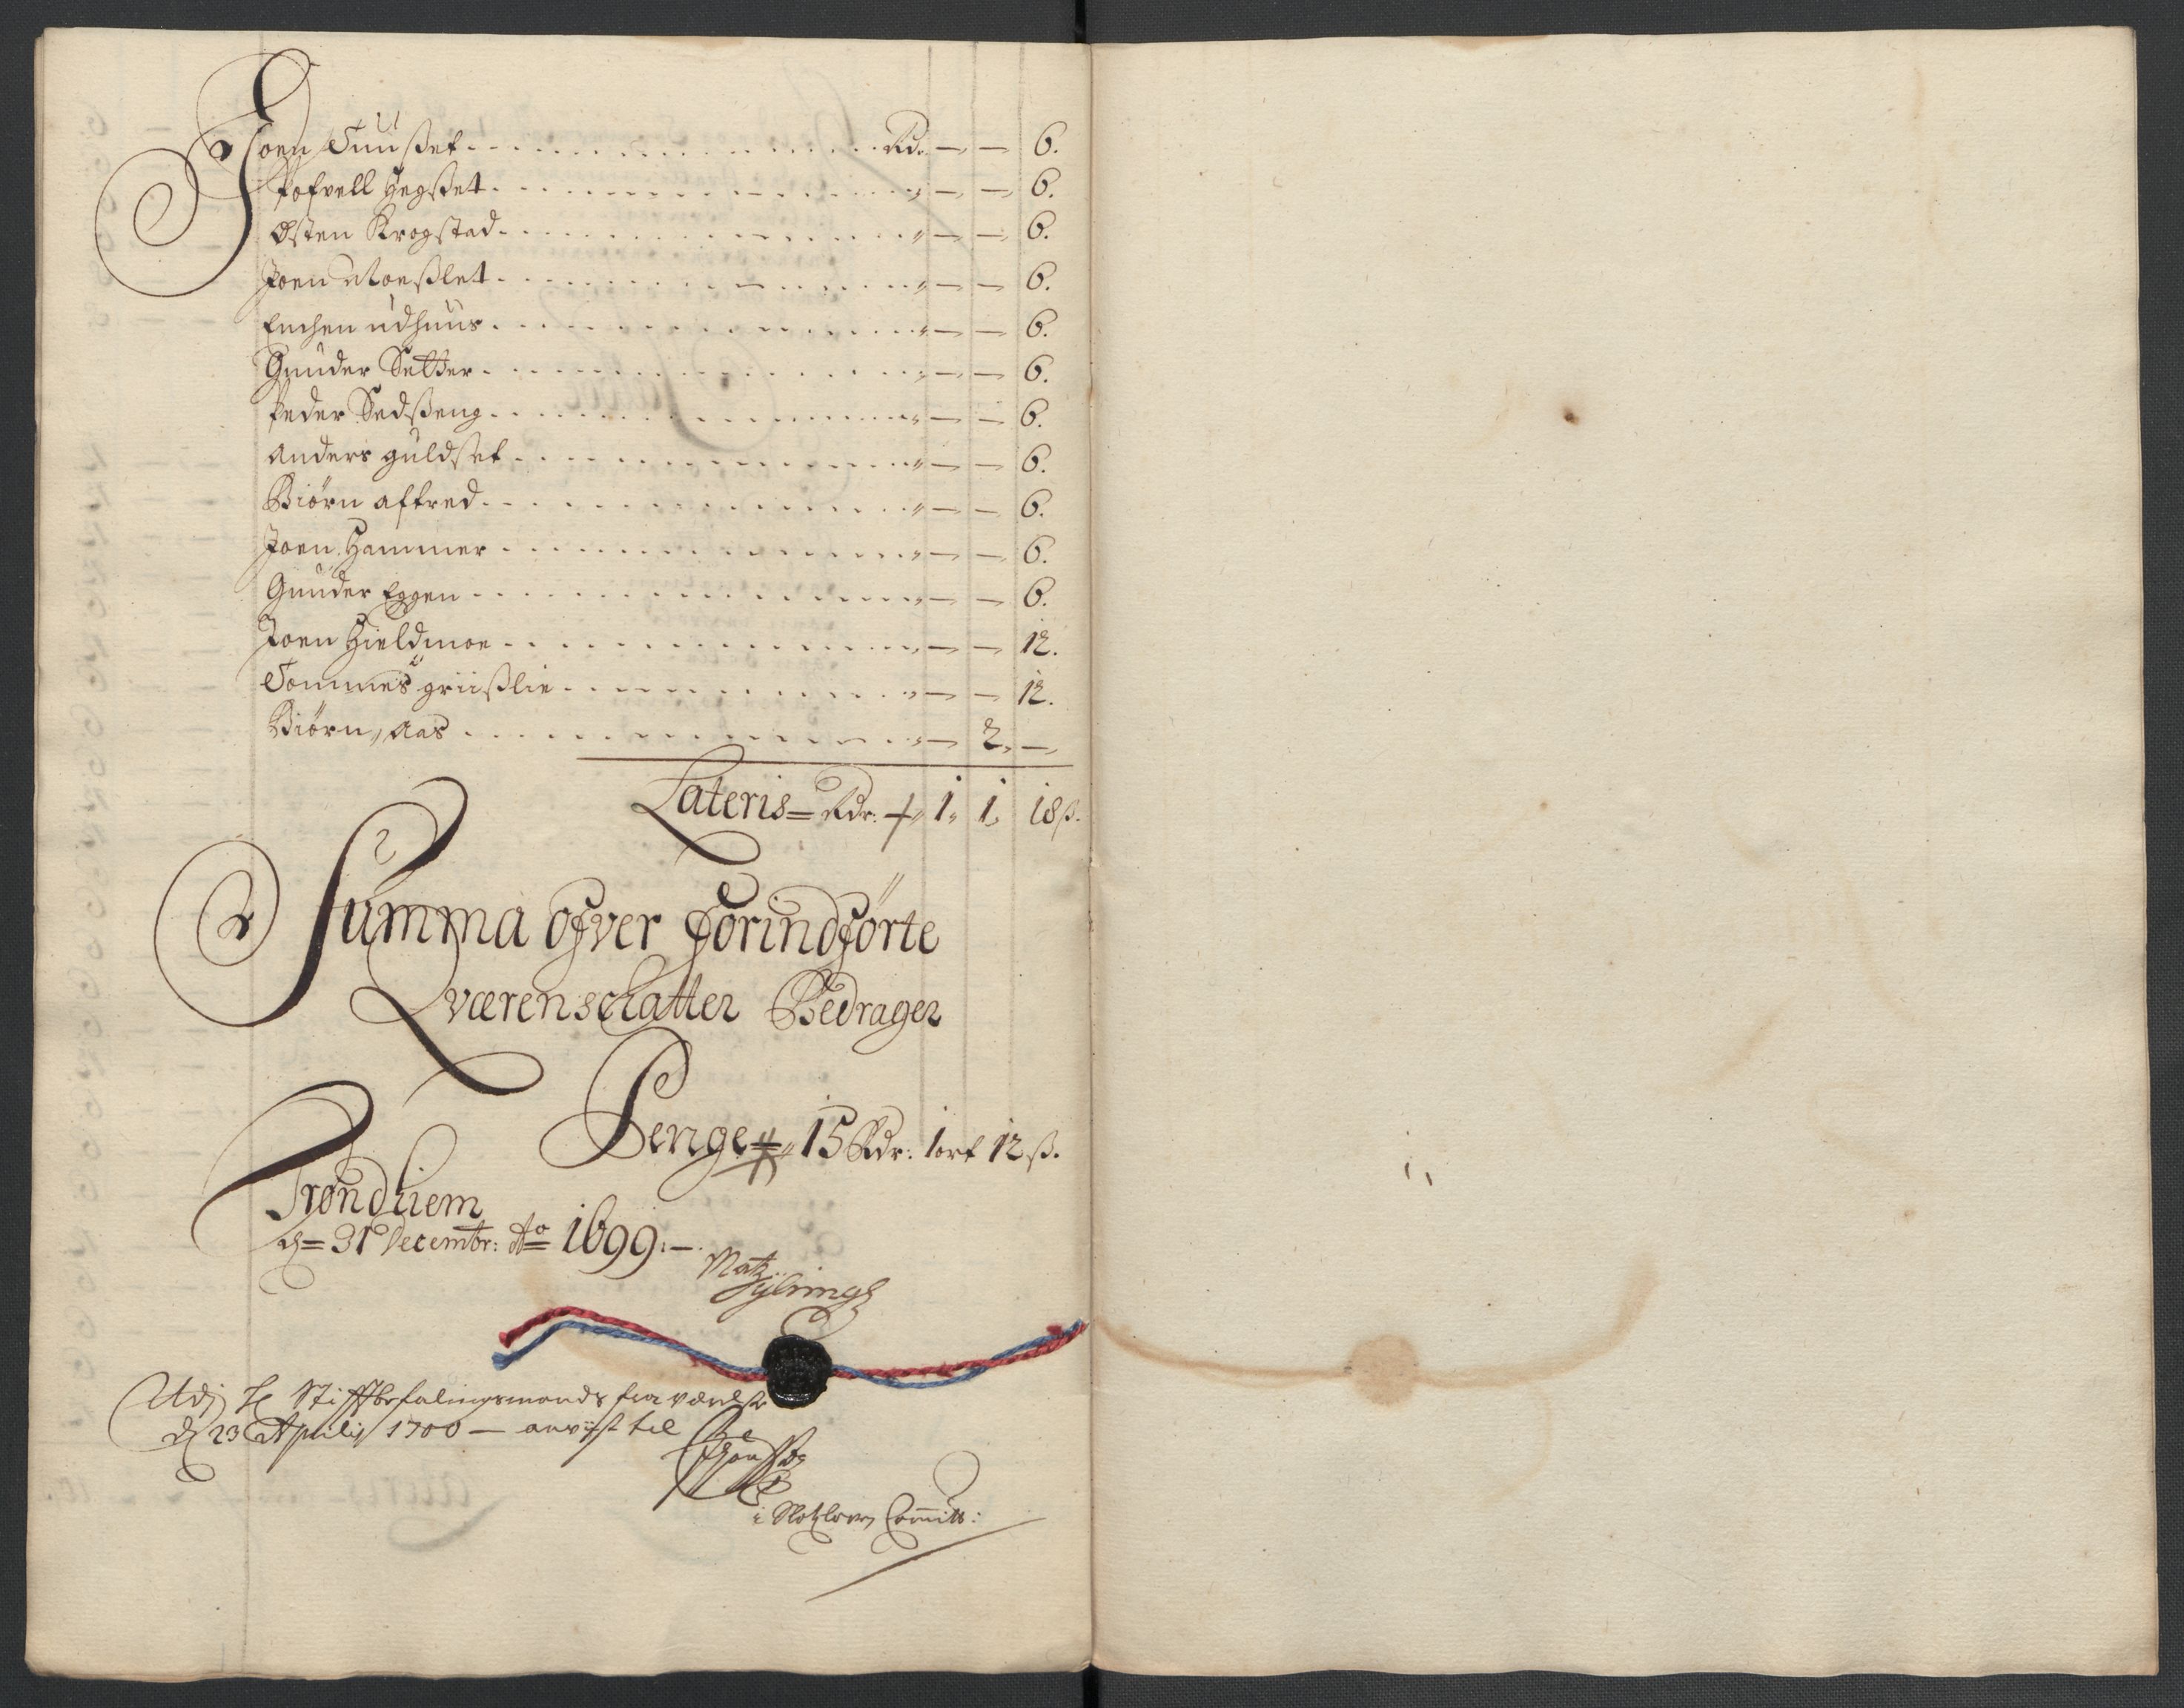 Joen Tuußet Rdr — — 6.
Pofvell Hegstet „ — — 6.
Østen Krogstad „ — — 6.
Joen Moeßlet „ — — 6.
Enchen udhuus „ — — 6.
Gunder Setter „ — — 6.
Peder Sedßeng „ — — 6.
Anders guldset „ — — 6.
Biörn aftred „ — — 6.
Joen Hammer „ — — 6.
Gunder Eggen „ — — 6.
Joen Hieldmoe „ — — 12.
Tommes griißlie „ — — 12.
Biörn Aas „ — 2 —
Lateris = Rdr: 1 1 18 ß.
Summa ofver forindförte
Qværenschatter Bedrager
Penge 15 Rdr: 1 ort 12 ß.
Trondhiem
d = 31 Decembr: Ao 1699: —
Matz
Udj Hr Stiftbefalingsmands fraværelse
d 23 Aprilis 1700 — anviist til
i Slotzloven Committ: